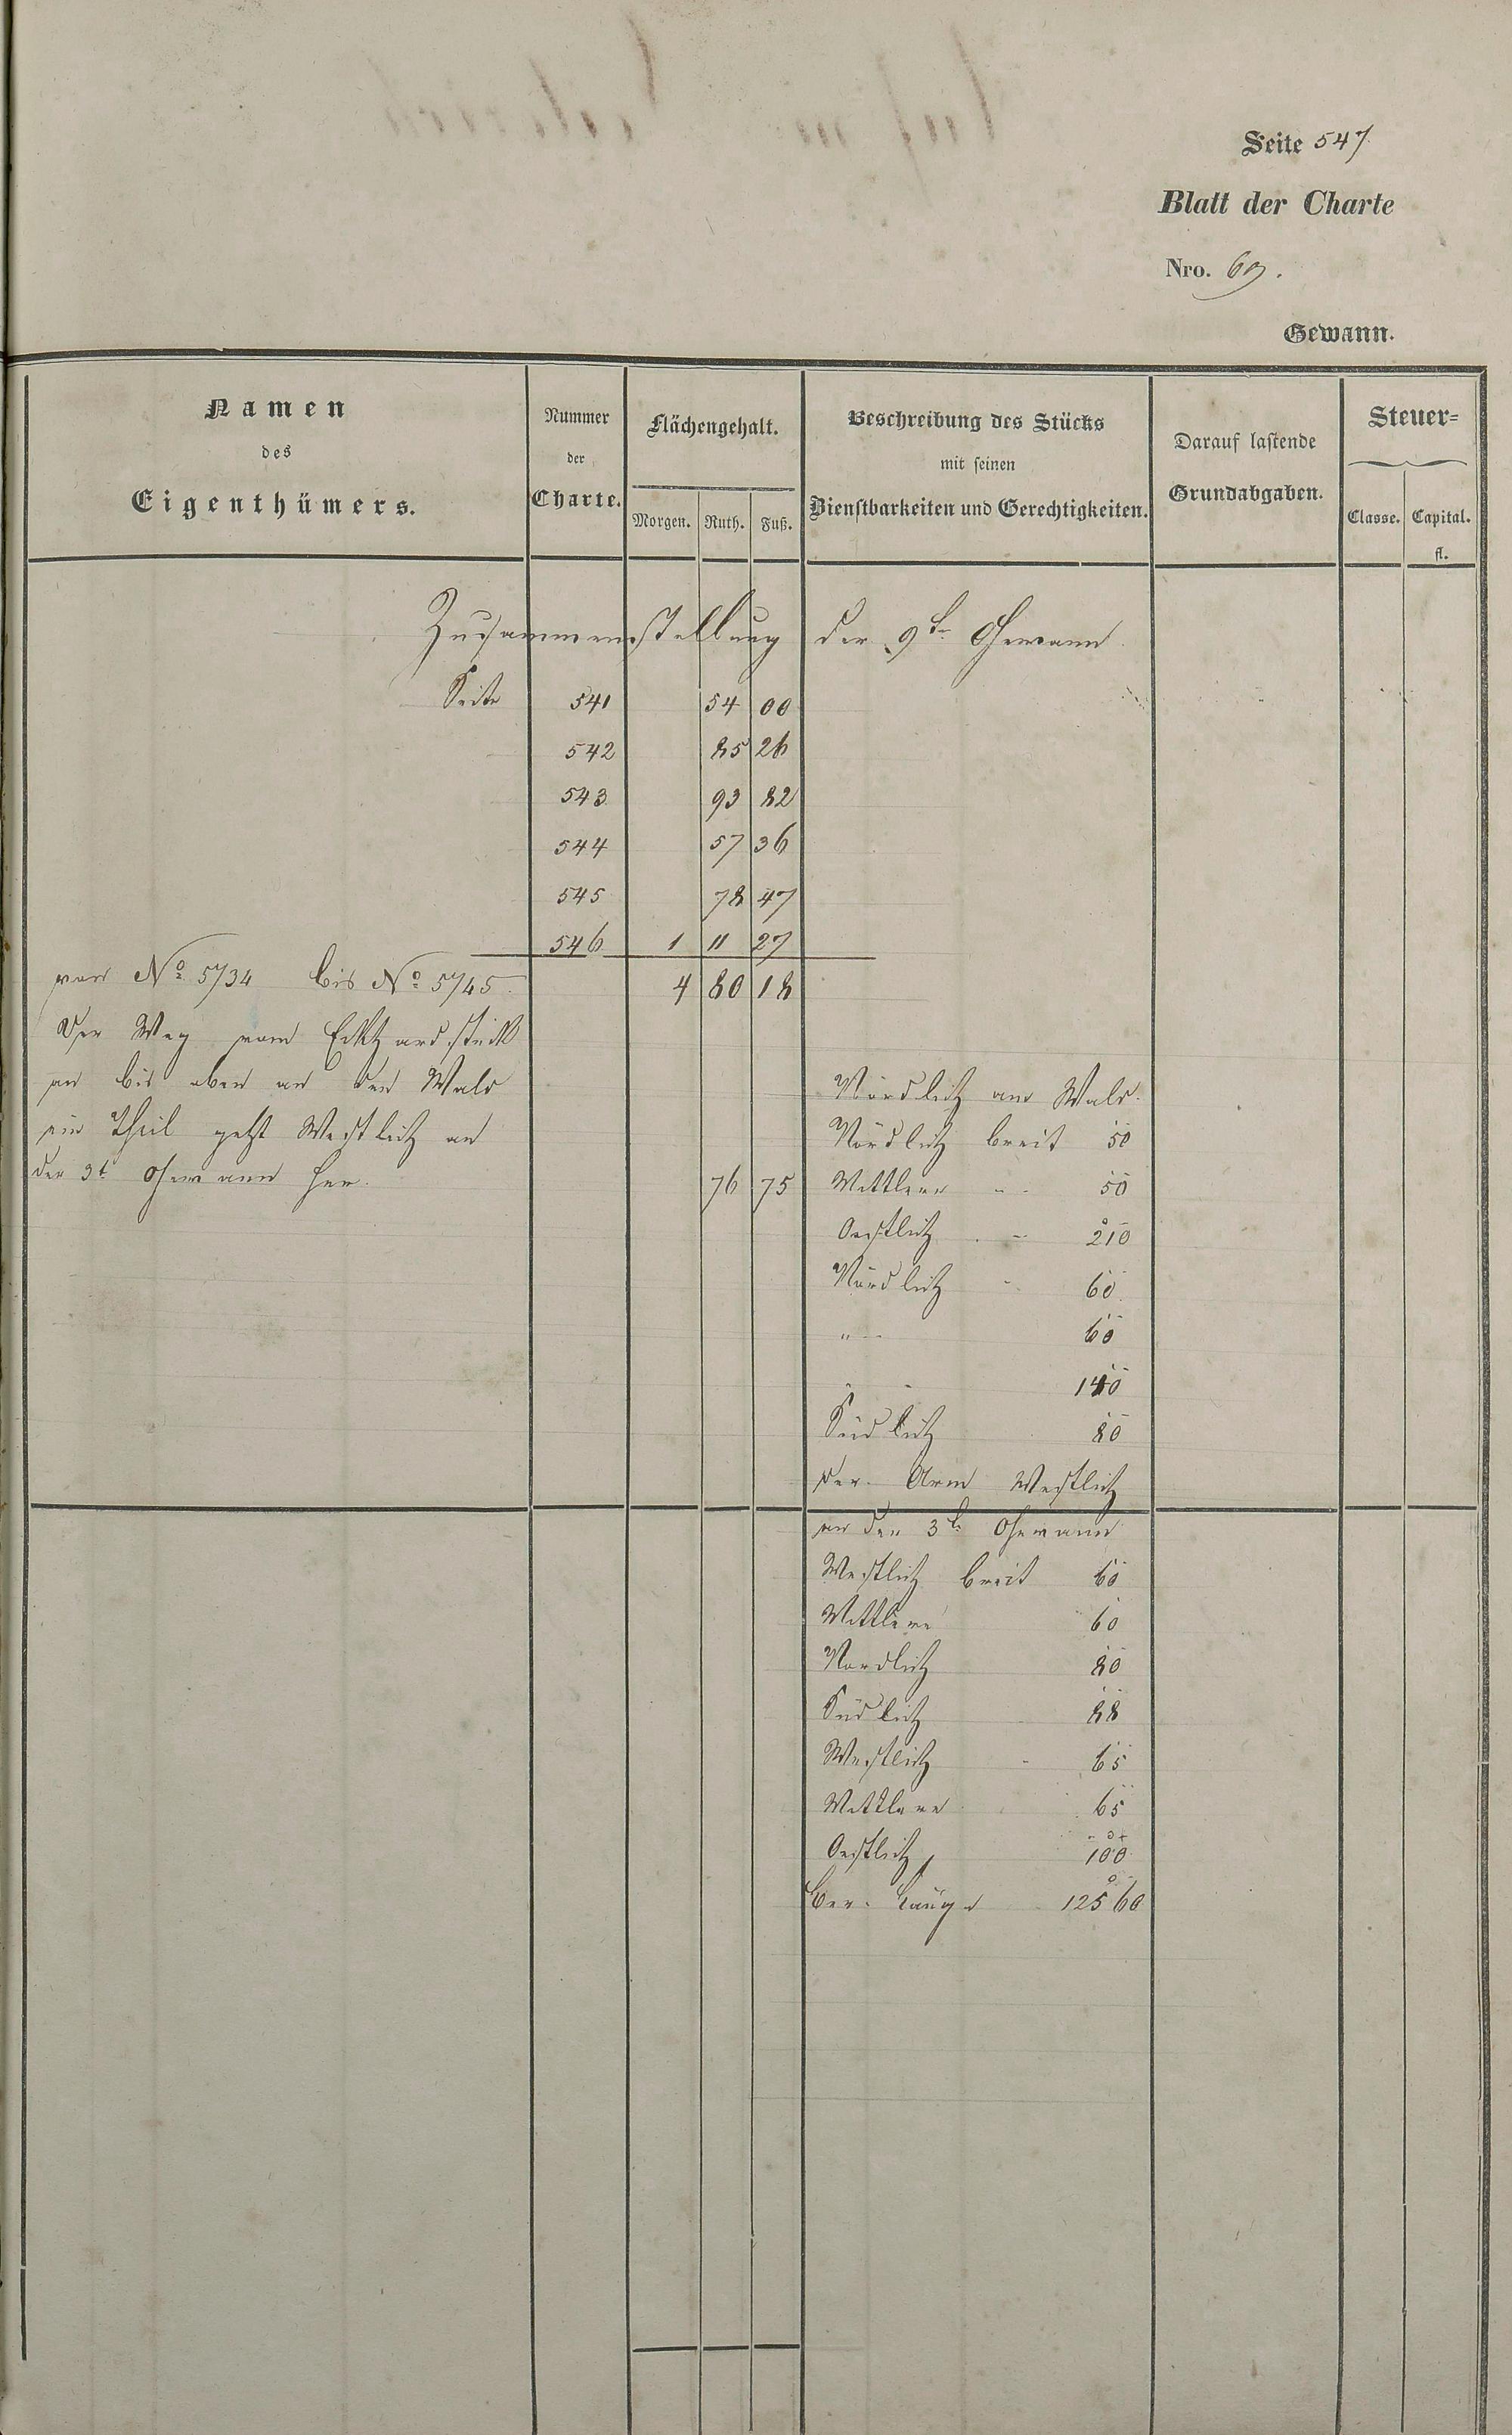 Seite 547
Blatt der Charte
Nro. 69.
Gewann.
Namen
des
Eigenthümers.
Nummer
der
Charte.
Flächengehalt.
Morgen. Ruth. Fuß.
Beschreibung des Stücks
mit seinen
Dienstbarkeiten und Gerechtigkeiten.
Darauf lastende
Grundabgaben.
Steuer=
Classe. Capital.
fl.
Zusammenstellung der 9te Gewann
Seite 541 54 00
542 85 26
543 93 82
544 57 36
545 78 47
546 1 11 27
von No 5734 bis No 5745. 4 80 18
Der Weg vom Eckhardstück
an bis oben an den Wald
ein Theil geht Westlich an
der 3t Gewann her. 76 75
Nördlich am Wald.
Nördlich breit 50
Mittlere " 50
Oestlich " 210
Nördlich " 60
" 60
" 140
Südlich 80
der Arm Westlich
an der 3te Gewann
Westlich breit 60
Mittlere 60
Nordlich 80
Südlich 88
Westlich " 65
Mittlere 65
Oestlich 100
Ber. Länge 125 60